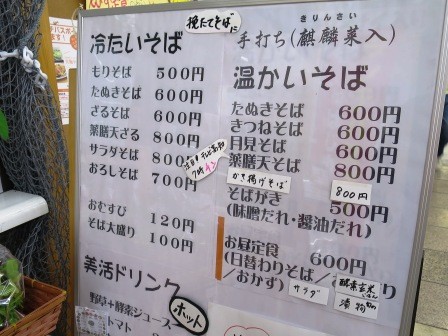 挽たてそばに
冷たいそば
もりそば 500円
たぬきそば 600円
ざるそば 600円
薬膳天ざる 800円
サラダそば 800円
おろしそば 700円
おむすび 120円
そば大盛り 100円
美活ドリンク
ホット
野草十酵素ジュース
トマト
きりんさい
手打ち(麒麟菜入)
温かいそば
たぬきそば 600円
きつねそば 600円
月見そば 600円
薬膳天そば 800円
かき揚げそば 800円
そばがき 500円
(味噌だれ・醤油だれ)
お昼定食 600円
(日替わりそば/お
/おかず)
サラダ
酵素玄米
漬物